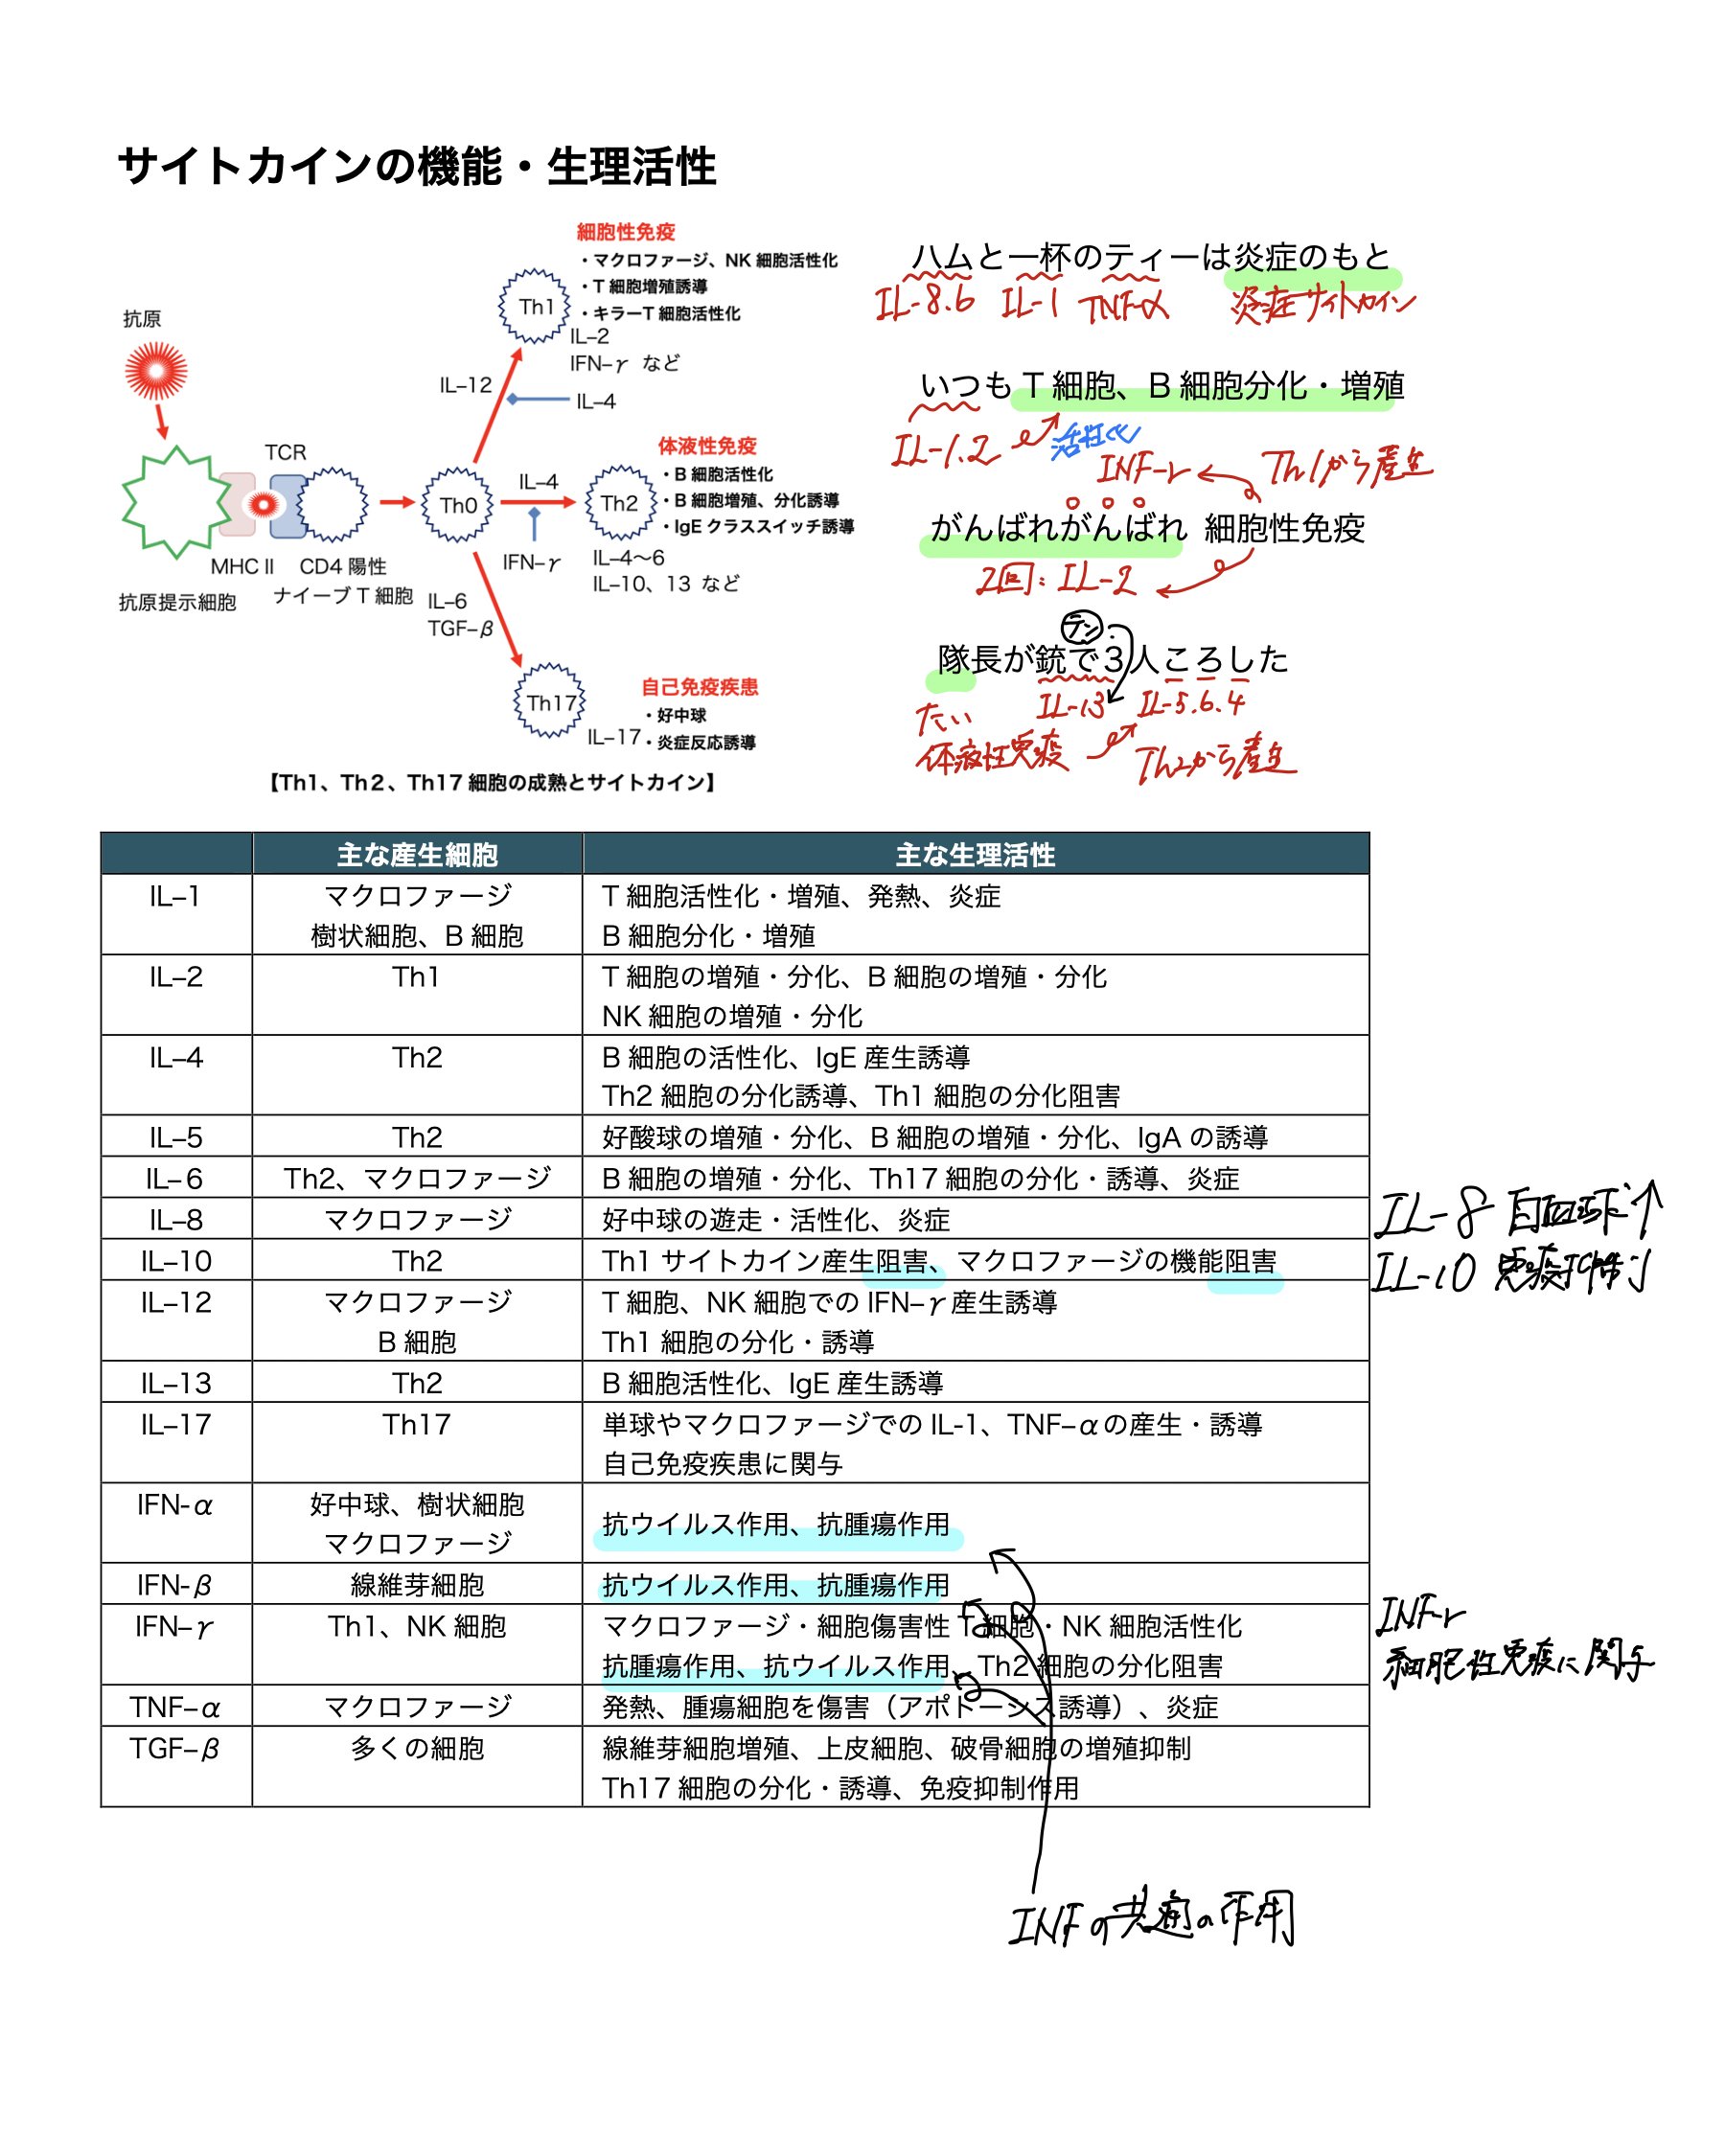 サイトカインの機能・生理活性
細胞性免疫
・マクロファージ、NK 細胞活性化
・T 細胞増殖誘導
・キラーT 細胞活性化
Th1
IL–2
IFN–γ など
抗原
IL–12
IL–4
TCR
体液性免疫
・B 細胞活性化
・B 細胞増殖、分化誘導
・IgE クラススイッチ誘導
Th0
IL–4
Th2
MHC II
CD4 陽性
ナイーブ T 細胞
抗原提示細胞
IFN–γ
IL–4〜6
IL–10、13 など
IL–6
TGF–β
Th17
自己免疫疾患
・好中球
・炎症反応誘導
IL–17
【Th1、Th2、Th17 細胞の成熟とサイトカイン】
ハムと一杯のティーは炎症のもと
IL-8.6 IL-1 TNF-α 炎症サイトカイン
いつも T 細胞、B 細胞分化・増殖
IL-1.2 活性化
INF-r Th1から産生
がんばれがんばれ 細胞性免疫
2回:IL-2
テン
隊長が銃で3人ころした
たい IL-13 IL-5.6.4
体液性免疫 Th2から産生
主な産生細胞 主な生理活性
IL–1 マクロファージ T 細胞活性化・増殖、発熱、炎症
樹状細胞、B 細胞 B 細胞分化・増殖
IL–2 Th1 T 細胞の増殖・分化、B 細胞の増殖・分化
NK 細胞の増殖・分化
IL–4 Th2 B 細胞の活性化、IgE 産生誘導
Th2 細胞の分化誘導、Th1 細胞の分化阻害
IL–5 Th2 好酸球の増殖・分化、B 細胞の増殖・分化、IgA の誘導
IL–6 Th2、マクロファージ B 細胞の増殖・分化、Th17 細胞の分化・誘導、炎症
IL–8 マクロファージ 好中球の遊走・活性化、炎症
IL-8 白血球↑
IL–10 Th2 Th1 サイトカイン産生阻害、マクロファージの機能阻害
IL-10 免疫抑制
IL–12 マクロファージ T 細胞、NK 細胞での IFN–γ 産生誘導
B 細胞 Th1 細胞の分化・誘導
IL–13 Th2 B 細胞活性化、IgE 産生誘導
IL–17 Th17 単球やマクロファージでの IL-1、TNF–αの産生・誘導
自己免疫疾患に関与
IFN-α 好中球、樹状細胞 抗ウイルス作用、抗腫瘍作用
マクロファージ
IFN-β 線維芽細胞 抗ウイルス作用、抗腫瘍作用
IFN–γ Th1、NK 細胞 マクロファージ・細胞傷害性 T 細胞・NK 細胞活性化
抗腫瘍作用、抗ウイルス作用、Th2 細胞の分化阻害
INF-r
細胞性免疫に関与
TNF–α マクロファージ 発熱、腫瘍細胞を傷害（アポトーシス誘導）、炎症
TGF–β 多くの細胞 線維芽細胞増殖、上皮細胞、破骨細胞の増殖抑制
Th17 細胞の分化・誘導、免疫抑制作用
INFの共通の作用